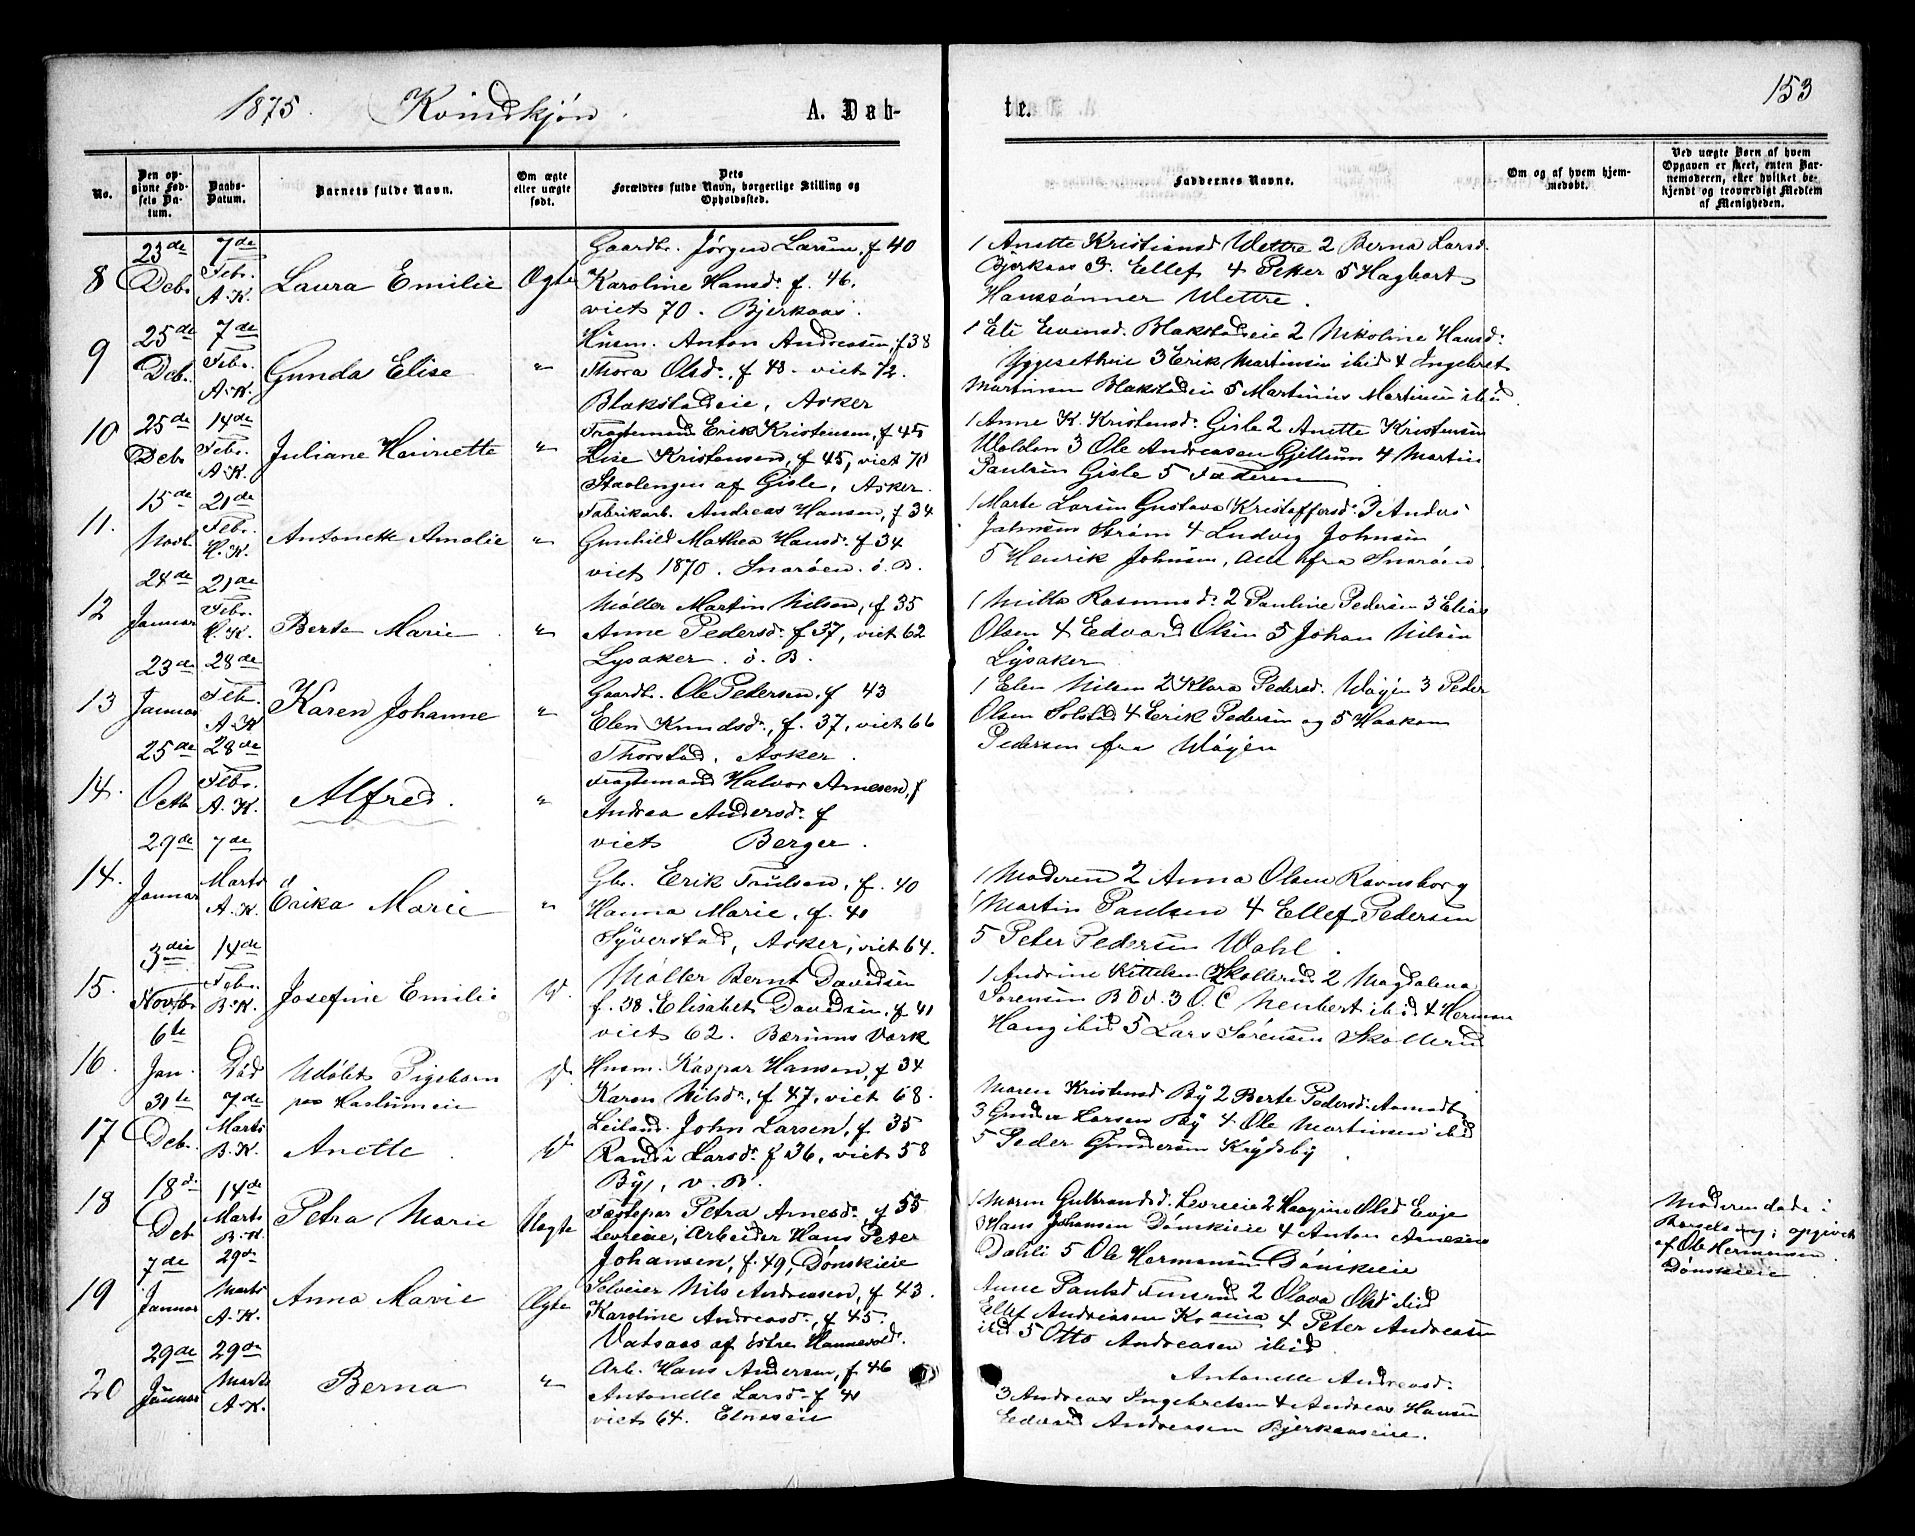 1875. Kvindkjøn. A. Døb-
te. 153
No.
Den op-
givne Fød-
sels Da-
tum.
Daabs-
Datum.
Barnets fulde Navn.
Om ægte
eller uægte
født.
Dets
Forældres fulde Navn, borgerlige Stilling og
Opholdssted.
Faddernes Navne.
Om og af hvem hjem-
medøbt.
Ved uægte Børn af hvem
Opgaven er skeet, enten Bar-
nemoderen, eller hvilket be-
kjendt og troværdigt Medlem
af Menigheden.
8 23de Deb. 7de Febr. A.K. Laura Emilie Ægte
Gaardb. Jørgen Larsen, f 40
Karoline Hansd. f. 46.
viet 70. Bjerkaas.
1 Anette Kristiansd Wettre 2 Berna Larsd.
Bjerkaas 3. Ellef 4 Peter 5 Hagbart
Hanssønner Wettre.
9 25de Deb. 7de Febr. A.K. Gunda Elise "
Husm. Anton Andreasen, f 38
Thora Olsd. f 48 viet 72.
Blakstadeie, Asker
1 Eli Evensd. Blakstadeie 2 Nikoline Hansd.
3 Erik Martinsen ibid 4 Ingebret
Martinsen Blakstadeie 5 Martinius Martinsen ibid
10 25de Deb. 14de Febr. A.K. Juliane Henriette "
Fragtemand Erik Kristensen, f 45
Lise Kristensen, f 45, viet 70
af Gisle, Asker.
1 Anne K. Kristensd. Gisle 2 Anette Kristensen
Wolden 3 Ole Andreasen Gjellum 4 Martin
Paulsen Gisle 5 Faderen
11. 15de Novb. 21de Febr. H.K. Antonette Amalie "
Fabrikarb. Andreas Hansen, f 34
Gunhild Mathea Hansd. f 34
viet 1870. Snarøen. ø. B.
1 Marte Larsen Gustava Kristoffersd. 3 Anders
Johnsen Strøm 4 Ludvig Johnsen
5 Henrik Johnsen, alle fra Snarøen.
12 24de Januar 21de Febr. H.K. Berte Marie "
Møller Martin Nilsen, f 35
Anne Pedersd. f 37, viet 62
Lysaker. ø. B.
1 Milla Rasmusd. 2 Pauline Pedersen 3 Elias
Olsen 4 Edvard Olsen 5 Johan Nilsen
Lysaker
13 23de Januar 28de Febr. A.K. Karen Johanne "
Gaardb. Ole Pedersen, f 43
Elen Knudsd., f. 37, viet 66
Thorstad, Asker.
1 Elen Nilsen 2 Klara Pedersd. Wøyen 3 Peder
Olsen Solstad 4 Erik Pedersen og 5 Haakon
Pedersen fra Wøyen
14. 25de Octb 28de Febr. A.K. Alfred. "
Fragtemand Halvor Arnesen, f
Andrea Andersd. f
viet Berger.
14. 29de Januar 7de Marts A.K. Erika Marie "
Gbr. Erik Paulsen, f. 40
Hanna Marie, f. 41
Syverstad, Asker, viet 64.
1 Moderen 2 Anna Olsen Ravnsborg
Martin Paulsen 4 Ellef Pedersen
5 Peter Pedersen Wahl.
15. 3die Novbr. 14de Febr. B.K. Josefine Emilie V.
Møller Bernt Davidsen
f. 38. Elisabet Davidsen, f 41
viet 62. Bærums Værk
1 Andrine Kittelsen Skollerud 2 Magdalena
Sørensen B.V. 3 O.C Neubert ibid 4 Herman
Haug ibid 5 Lars Sørensen Skollerud
16. 6te Jan. Død Udøbt Pigebarn V.
paa Haslumeie
Husm. Kaspar Hansen, f 34
Karen Nilsd., f 47, viet 68.
17 31te Deb. 7de Marts B.K. Anette. V
Leiland. John Larsen, f 35
Randi Larsd. f 36, viet 58
By, v. B.
Maren Kristensd By 2 Berte Pedersd.
3 Gunder Larsen By 4 Ole Martinsen ibid
5 Peder Gundersen Krydsby.
18 18de Deb 14de Marts B.K. Petra Marie Uægte
Petra Arnesd. f 55
Levreeie, Arbeider Hans Peter
Johansen, f. 49, Dønskieie
1 Maren Gulbrandsd. Levreeie 2 Olsd Evje
3 Hans Johansen Dønskieie 4 Anton Arnesen
Dahli 5 Ole Hermansen Dønskieie
Moderen døde i
Barselseng; opgivet
af Ole Hermansen
Dønskieie
19 7de Januar 29de Marts A.K. Anna Marie Ægte
Selveier Nils Andreasen, f 43.
Karoline Andreasd., f 45.
Vatsaas af østre Hannevold.
Anne Paulsd 2 Olava Olsd ibid
Ellef Andreasen 4 Peter Andreasen
ibid 5 Otto Andreasen ibid
20 29de Januar 29de Marts A.K. Berna "
Arb. Hans Andersen, f 46
Antonette Larsd. f 41
viet 64.
Antonette Andreasd.
3 Andreas Ingebretsen 4 Andreas Hansen
Edvard Andreasen Bjerkaaseie.